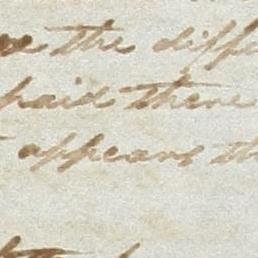 the diffe
paid there
appears th